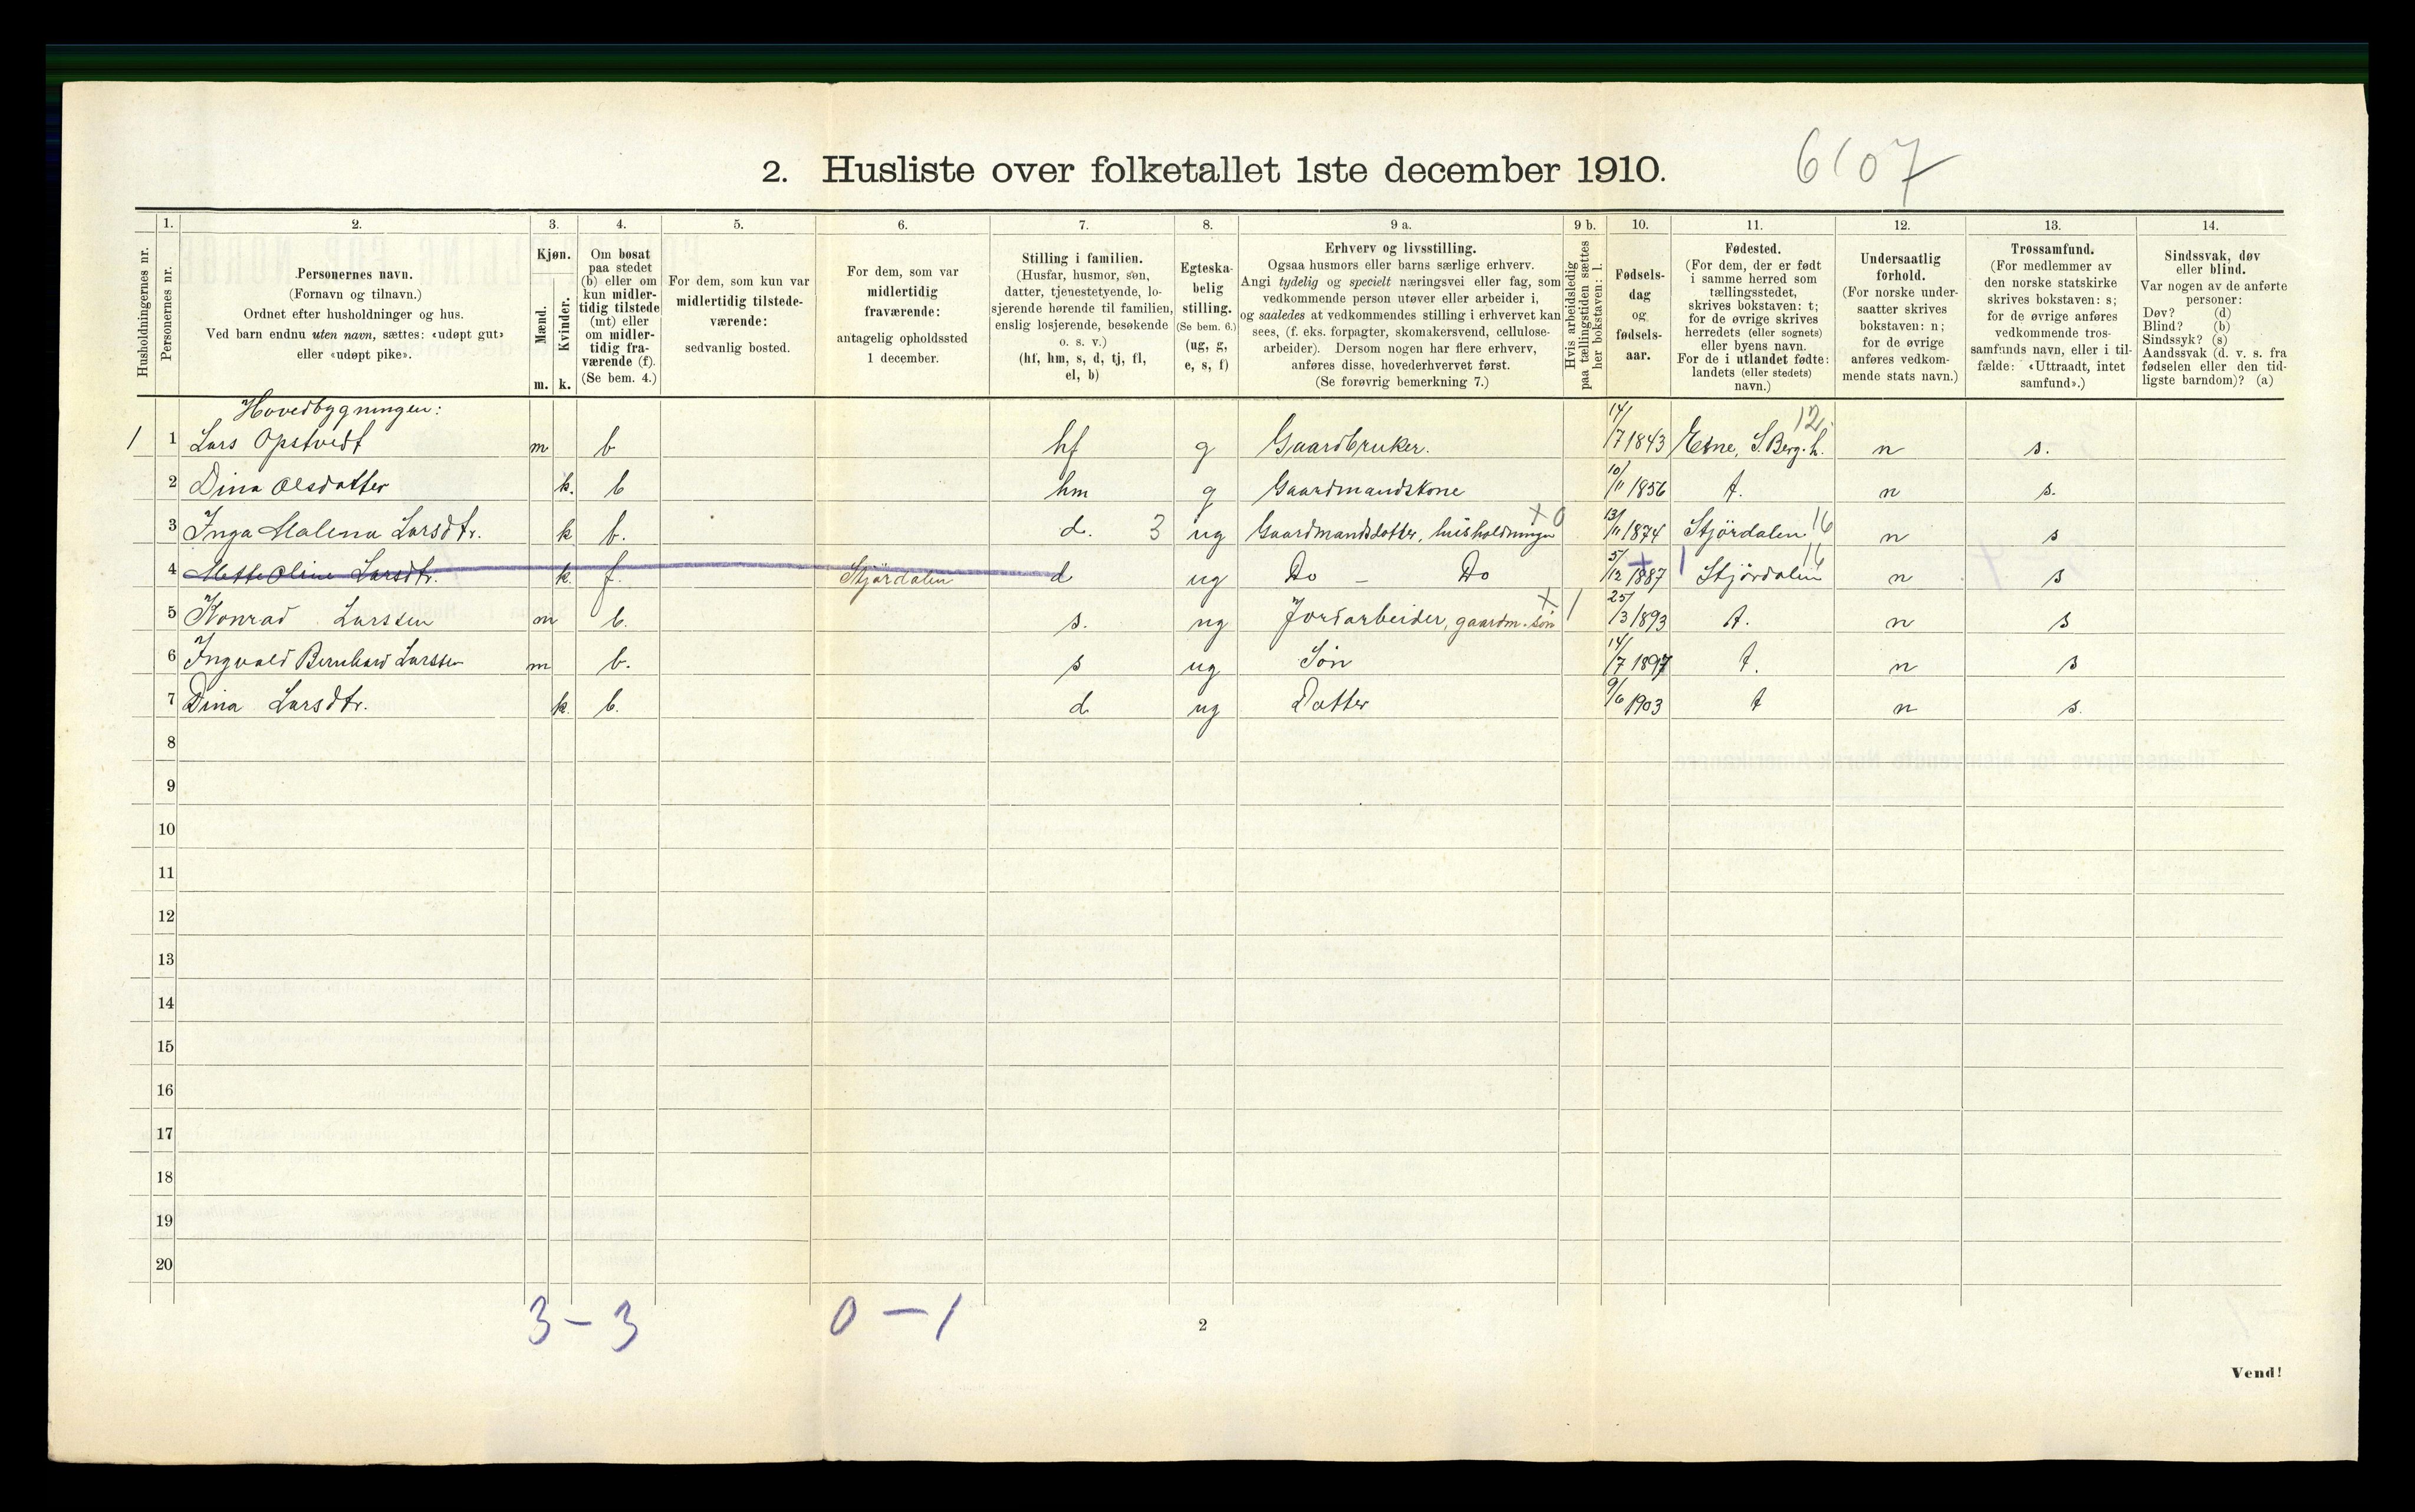 2. Husliste over folketallet 1ste december 1910. 6107
1. 2. 3. 4. 5. 6. 7. 8. 9 a. 9 b. 10. 11. 12. 13. 14.
Husholdningernes nr.
Personernes nr.
Personernes navn.
(Fornavn og tilnavn.)
Ordnet efter husholdninger og hus.
Ved barn endnu uten navn, sættes: «udøpt gut»
eller «udøpt pike».
Kjøn.
Mænd.
Kvinder.
m. k.
Om bosat
paa stedet
(b) eller om
kun midler-
tidig tilstede
(mt) eller
om midler-
tidig fra-
værende (f).
(Se bem. 4.)
For dem, som kun var
midlertidig tilstede-
værende:
sedvanlig bosted.
For dem, som var
midlertidig
fraværende:
antagelig opholdssted
1 december.
Stilling i familien.
(Husfar, husmor, søn,
datter, tjenestetyende, lo-
sjerende hørende til familien,
enslig losjerende, besøkende
o. s. v.)
(hf, hm, s, d, tj, fl,
el, b)
Egteska-
belig
stilling.
(Se bem. 6.)
(ug, g,
e, s, f)
Erhverv og livsstilling.
Ogsaa husmors eller barns særlige erhverv.
Angi tydelig og specielt næringsvei eller fag, som
vedkommende person utøver eller arbeider i,
og saaledes at vedkommendes stilling i erhvervet kan
sees, (f. eks. forpagter, skomakersvend, cellulose-
arbeider). Dersom nogen har flere erhverv,
anføres disse, hovederhvervet først.
(Se forøvrig bemerkning 7.)
Hvis arbeidsledig
paa tællingstiden sættes
her bokstaven: l.
Fødsels-
dag
og
fødsels-
aar.
Fødested.
(For dem, der er født
i samme herred som
tællingsstedet,
skrives bokstaven: t;
for de øvrige skrives
herredets (eller sognets)
eller byens navn.
For de i utlandet fødte:
landets (eller stedets)
navn.)
Undersaatlig
forhold.
(For norske under-
saatter skrives
bokstaven: n;
for de øvrige
anføres vedkom-
mende stats navn.)
Trossamfund.
(For medlemmer av
den norske statskirke
skrives bokstaven: s;
for de øvrige anføres
vedkommende tros-
samfunds navn, eller i til-
fælde: «Uttraadt, intet
samfund».)
Sindssvak, døv
eller blind.
Var nogen av de anførte
personer:
Døv? (d)
Blind? (b)
Sindssyk? (s)
Aandssvak (d. v. s. fra
fødselen eller den tid-
ligste barndom)? (a)
Hovedbygningen:
1 1 Lars Opstvedt m b hf g Gaardbruker. 14/7 1843 Etne, S. Berg. h. 12. n s.
2 Dina Olsdatter k. b hm g Gaardmandskone 10/11 1856 t. n s.
3 Inga Malena Larsdtr. k b. d. 3 ug Gaardmandsdotter, husholdningen x 0 13/11 1874 Stjördalen 16 n s
4 Mette Oline Larsdtr. k. f. Stjördalen d ug Do - Do 5/12 1887 + 1 Stjördalen 16 n s
5 Konrad Larssen m b. s. ug Jordarbeider, gaardm. søn x 1 25/3 1893 t. n s
6 Ingvald Bernhard Larssen m b. s ug Søn 14/7 1897 t. n s
7 Dina Larsdtr. k. b. d ug Datter 9/6 1903 t n s.
8
9
10
11
12
13
14
15
16
17
18
19
20
3 - 3 0 - 1
2
Vend!